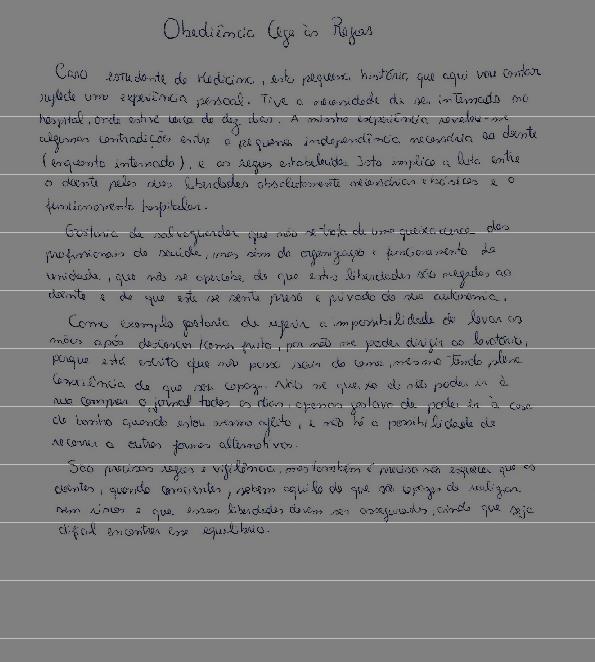 Obediência Cega às Regras
Caro estudante de Medicina, esta pequena história que aqui vou contar
reflete uma experiência pessoal. Tive a necessidade de ser internado no
hospital, onde estive cerca de dez dias. A minha experiência revelou-me
algumas contradições entre a pequena independência necessária ao doente
(enquanto internado), e as regras estabelecidas. Isto implica a luta entre
o doente pelas suas liberdades absolutamente necessárias e básicas e o
funcionamento hospitalar.
Gostaria de salvaguardar que não se trata de uma queixa acerca dos
profissionais de saúde, mas sim da organização e funcionamento da
unidade, que não se apercebe de que estas liberdades são negadas ao
doente e de que este se sente preso e privado da sua autonomia.
Como exemplo gostaria de referir a impossibilidade de lavar as
mãos após descascar/comer fruta, por não me poder dirigir ao lavatório,
porque está escrito que não posso sair da cama, mesmo tendo plena
consciência de que sou capaz. Não me queixo de não poder ir à
rua comprar o jornal todos os dias, apenas gostava de poder ir à casa
de banho quando estou mesmo aflito, e não há a possibilidade de
recorrer a outras formas alternativas.
São precisas regras e vigilância, mas também é preciso não esquecer que os
doentes, quando conscientes, sabem aquilo de que são capazes de realizar
sem riscos e que essas liberdades devem ser asseguradas, ainda que seja
difícil encontrar esse equilíbrio.